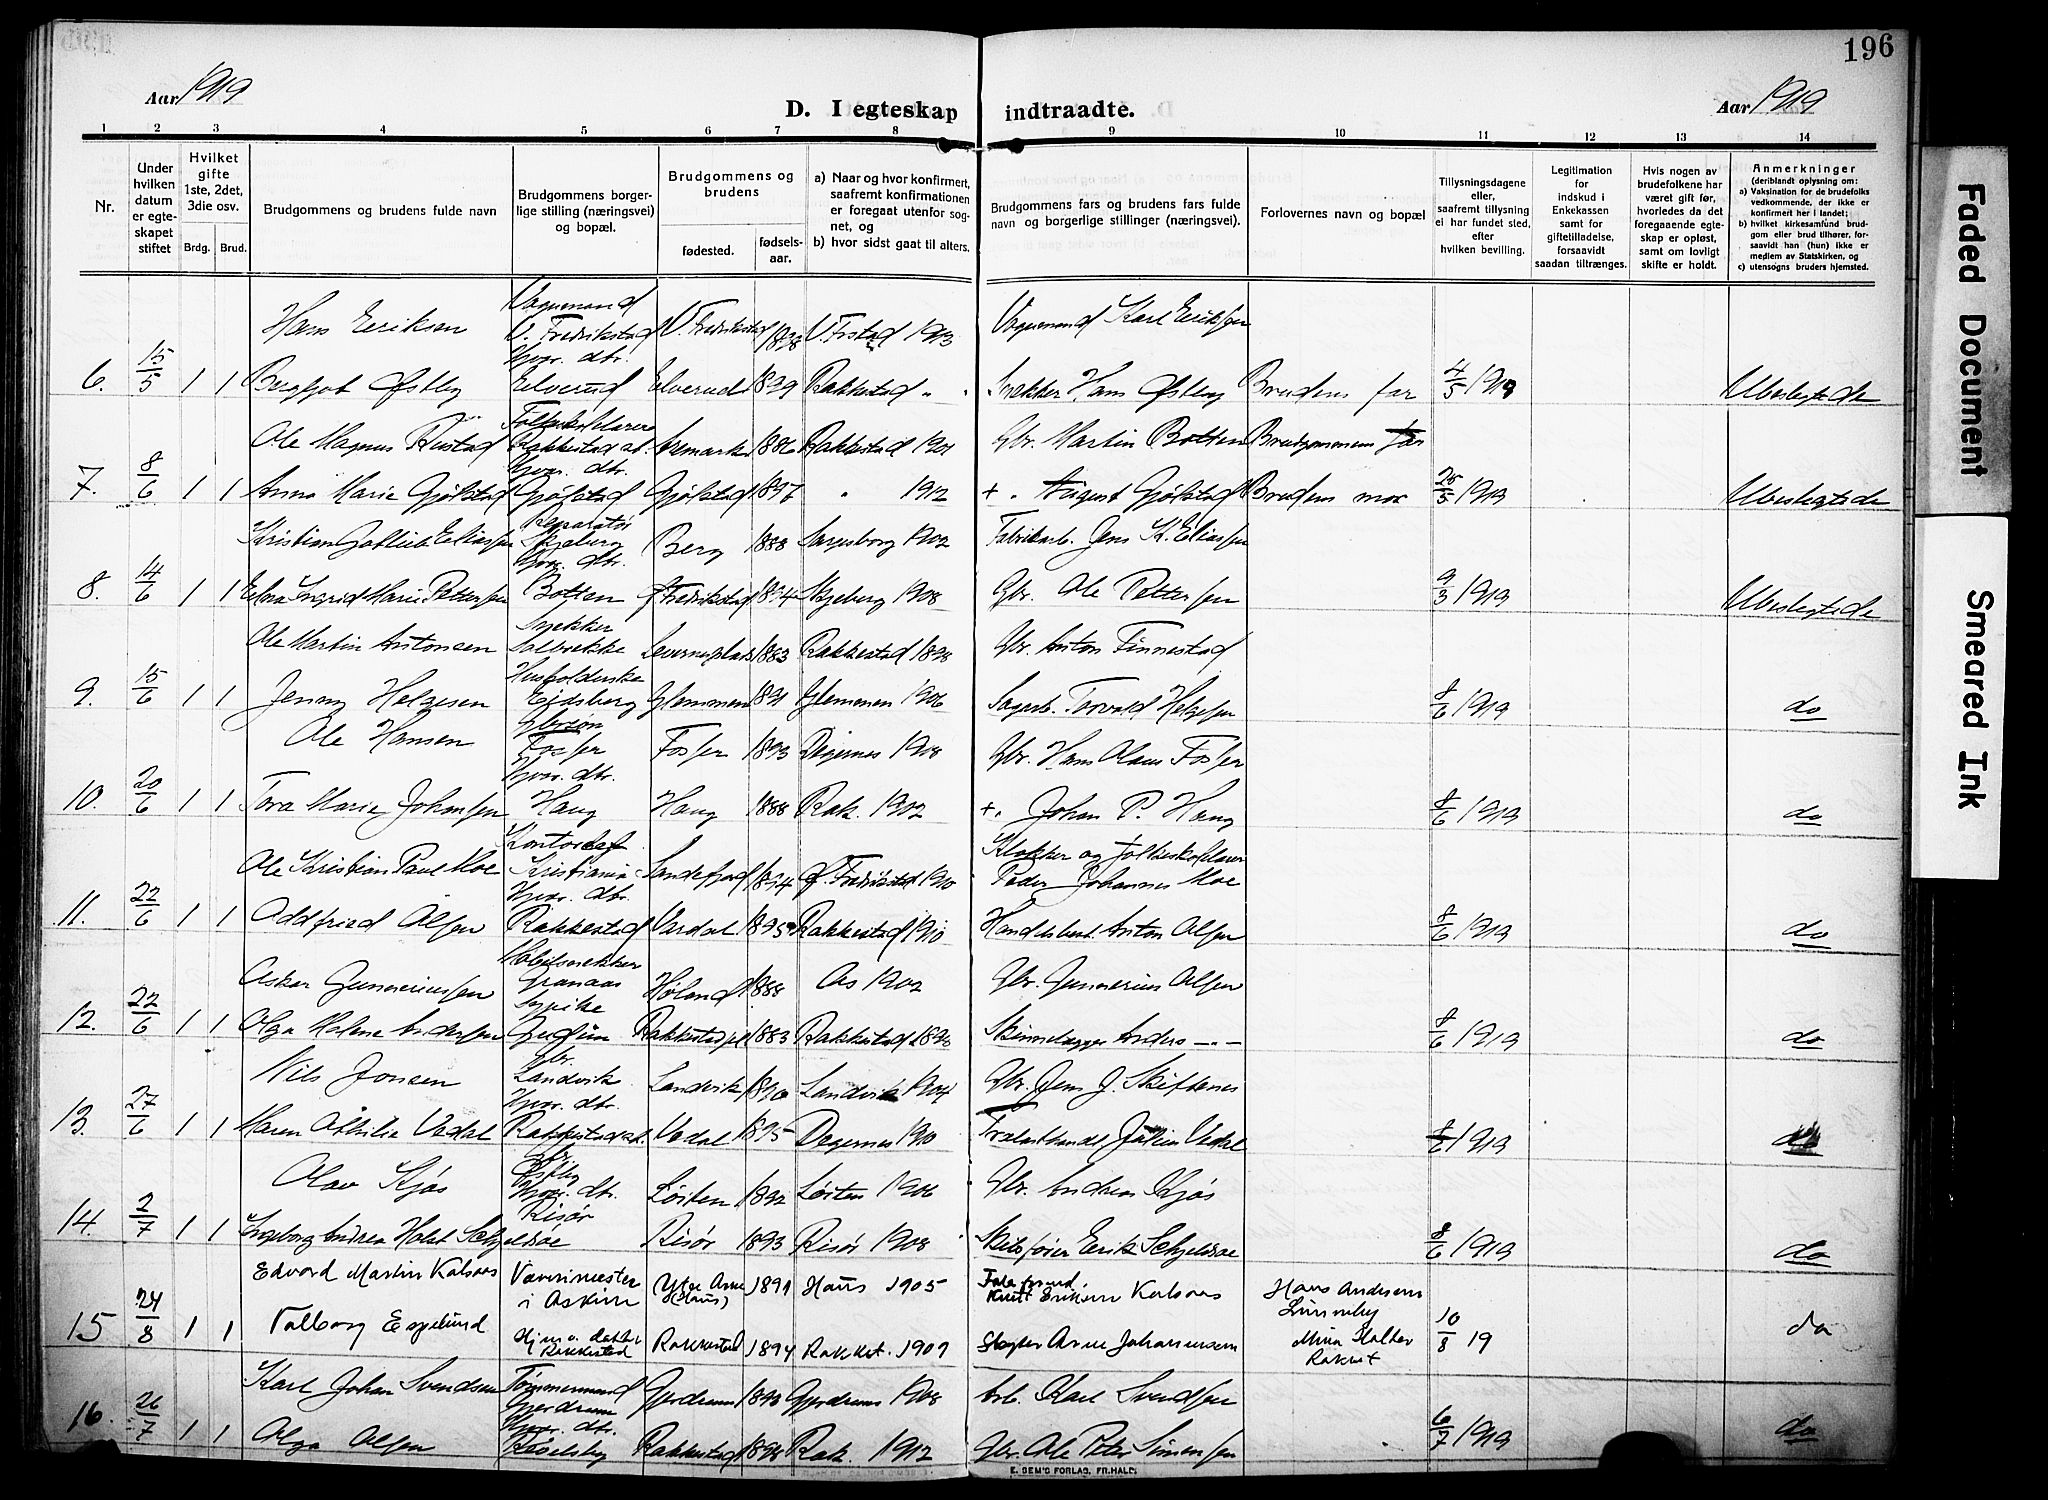 196
Aar 1919
D. I egteskap indtraadte.
Aar 1919
1 2 3 4 5 6 7 8 9 10 11 12 13 14
Nr.
Under hvilken datum er egteskapet stiftet
Hvilket gifte 1ste, 2det, 3die osv.
Brdg. Brud.
Brudgommens og brudens fulde navn
Brudgommens borgerlige stilling (næringsvei) og bopæl.
Brudgommens og brudens
fødested. fødselsaar.
a) Naar og hvor konfirmert, saafremt konfirmationen er foregaat utenfor sognet, og
b) hvor sidst gaat til alters.
Brudgommens fars og brudens fars fulde navn og borgerlige stillinger (næringsvei).
Forlovernes navn og bopæl
Tillysningsdagene eller, saafremt tillysning ei har fundet sted, efter hvilken bevilling.
Legitimation for indskud i Enkekassen samt for giftetilladelse, forsaavidt saadan tiltrænges.
Hvis nogen av brudefolkene har været gift før, hvorledes da det foregaaende egteskap er opløst, samt om lovligt skifte er holdt.
Anmerkninger
(deriblandt oplysning om:
a) Vaksination for de brudefolks vedkommende, der ikke er konfirmert her i landet;
b) hvilket kirkesamfund brudgom eller brud tilhører, forsaavidt han (hun) ikke er medlem av Statskirken, og
c) utensogns bruders hjemsted.
Hans Eriksen Vognmand V. Fredrikstad V. Fredrikstad 1898 V. Frstad 1913 Vognmand Karl Eriksen
6. 15/5 1 1 Bergljot Østby Hjvr. dtr. Elverud Elverud 1899 Rakkestad " Snekker Hans Østby Brudens far 4/5 1919 Ubeslegtede
Ole Magnus Rustad Rakkestad st. Aremark 1886 Rakkestad 1901 Gbr. Martin Botten Brudgommens far
7. 8/6 1 1 Anna Marie Gjølstad Hjvr. dtr. Gjølstad Gjølstad 1897 " 1912 + " August Gjølstad Brudens mor 25/5 1919 Ubeslegtede
Kristian Gotlieb Eliassen Reparatør Skjeberg Berg 1888 Sarpsborg 1902 Fabrikarb. Jens K. Eliassen
8. 14/6 1 1 Elna Ingrid Marie Pettersen Hjvr. dtr. Botten Fredrikstad 1894 Skjeberg 1908 Gbr. Ole Pettersen 9/3 1919 Ubeslegtede
Ole Martin Antonsen Snekker Solbrekke 1883 Rakkestad 1898 Gbr. Anton Finnestad
9. 15/6 1 1 Jenny Helgesen Husholderske Eidsberg Glemmen 1891 Glemmen 1906 Sagarb. Torvald Helgesen 8/6 1919 do
Ole Hansen Gbrsøn Fosser Fosser 1893 Degernes 1908 Gbr. Hans Olaus Fosser
10. 20/6 1 1 Tora Marie Johansen Hjvr. dtr. Haug Haug 1888 Rak. 1902 + " Johan P. Haug 8/6 1919 do
Ole Kristian Paul Moe Kontorchef Kristiania Sandefjord 1894 Fredrikstad 1910 Klokker og folkeskolelærer Peder Johannes Moe
11. 22/6 1 1 Oddfried Olsen Hjvr. dtr. Rakkestad Vardal 1895 Rakkestad 1910 Handelsbest. Anton Olsen 8/6 1919 do
Asker Gunneriussen Møbelsnekker Granaas Høland 1888 Ås 1902 Gbr. Gunnerius Olsen
12. 22/6 1 1 Olga Helene Andersen Sypike Rakkestad 1883 Rakkestad 1898 Skinnelægger Anders -"- 8/6 1919 do
Nils Jonsen Gbr. Landvik Landvik 1890 Landvik 1904 Gbr. Jens J. Skiftenes
13. 27/6 1 1 Maren Othilie Vedal Hjvr. dtr. Rakkestad st. Vedal 1895 Degernes 1910 Trælasthandl. Vedal 8/6 1919 do
Olav Kjøs Gbr. Østby Løiten 1892 Løiten 1906 Gbr. Andreas Kjøs
14. 2/7 1 1 Ingeborg Andrea Holst Schjelsøe Hjvr. dtr. Risør Risør 1893 Risør 1908 Skibsfører Erik Schjelsøe 8/6 1919 do
Edvard Martin Kalsaas Væverimester i Askim Ytre Arne (Haus) 1891 Haus 1905 Knut Eriksen Kalsaas Hans Andersen Lunneby
15 24/8 1 1 Valborg Espelund Hjemv. datter Rakkestad Rakkestad 1894 Rakkest. 1909 Slagter Arne Johannessen Mina Rakkest 10/8 19 do
Karl Johan Svendsen Tømmermand Gjerdrum Gjerdrum 1893 Gjerdrum 1908 Arb. Karl Svendsen
16. 26/7 1 1 Olga Olsen Hjvr. dtr. Rakkestad 1898 Rak. 1912 Gbr. Ole Peter Simensen 6/7 1919 do
E. SEM'S FORLAG, FR.HALD.
Faded Document
Smeared Ink